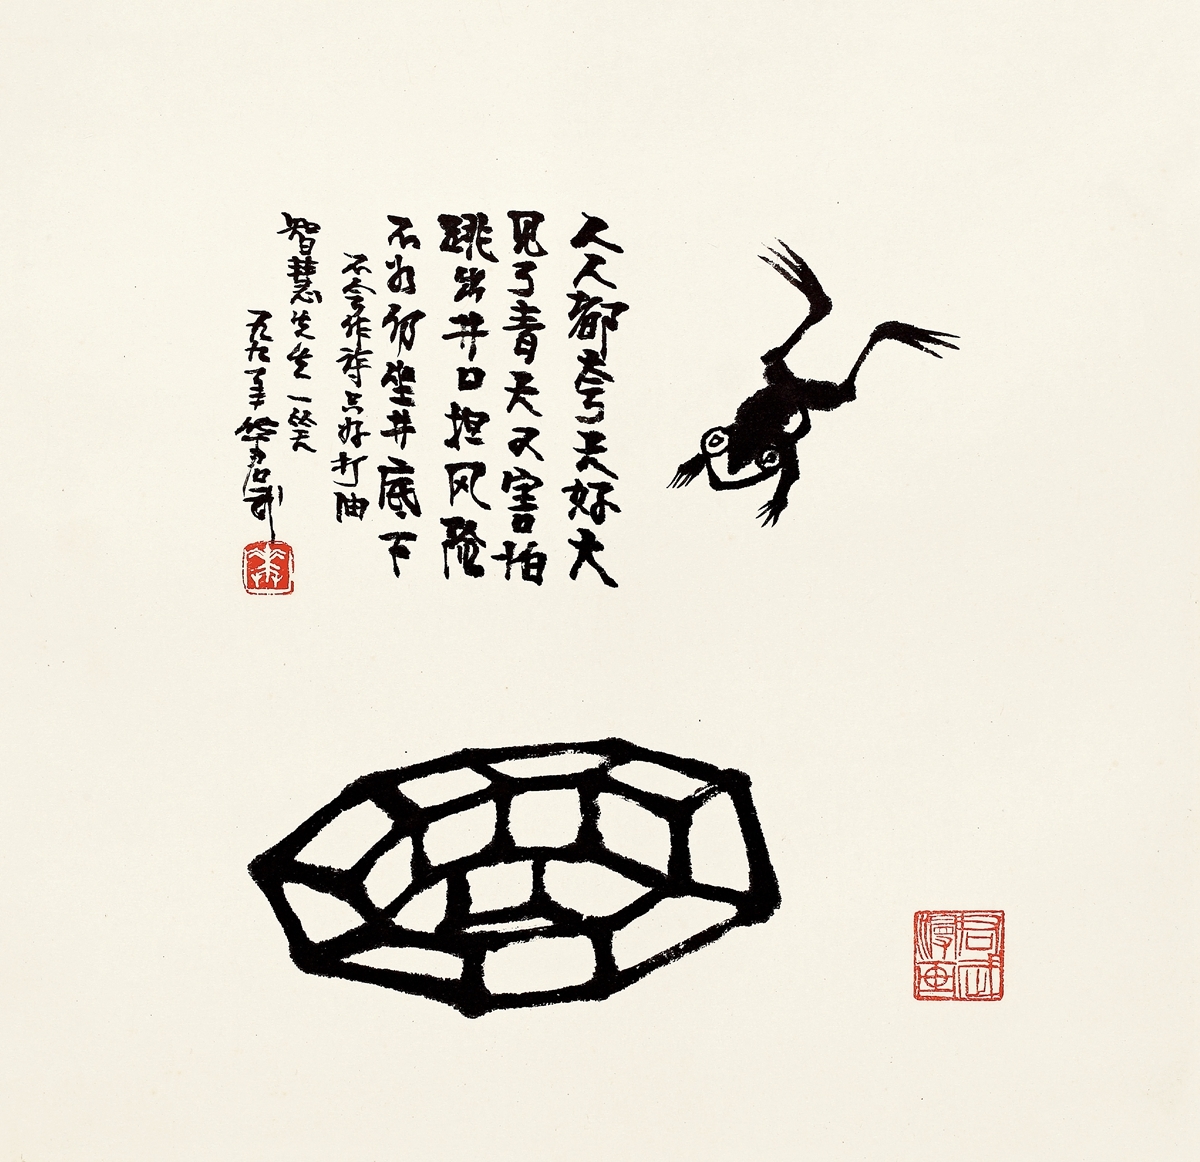 人人都夸天好大
见了青天又害怕
跳出井口担风险
不如仍坐井底下
不会作诗只好打油
智慧先生一笑
年华君武
华
君武
漫画